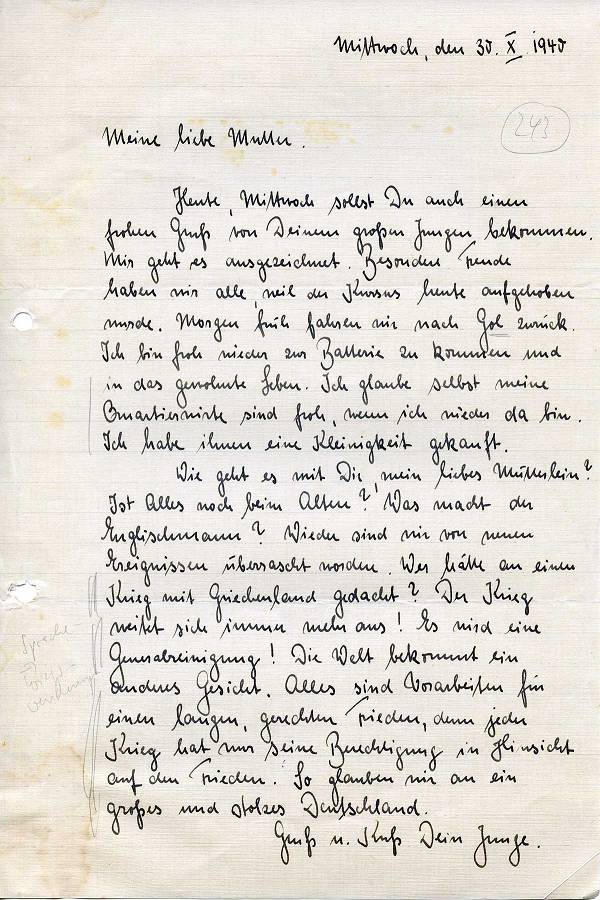 Mittwoch, den 30. X. 1940
243
Meine liebe Mutter.
Heute, Mittwoch sollst Du auch einen
frohen Gruß von Deinem großen Jungen bekommen.
Mir geht es ausgezeichnet. Besondere Freude
haben wir alle, weil der Kursus heute aufgehoben
wurde. Morgen früh fahren wir nach Gol zurück.
Ich bin froh wieder zur Batterie zu kommen und
in das gewohnte Leben. Ich glaube selbst meine
Quartierwirte sind froh, wenn ich wieder da bin.
Ich habe ihnen eine Kleinigkeit gekauft.
Wie geht es mit Dir, mein liebes Mütterlein?
Ist Alles noch beim Alten? Was macht der
Englischmann? Wieder sind wir von neuen
Ereignissen überrascht worden. Wer hätte an einen
Krieg mit Griechenland gedacht? Der Krieg
weitet sich immer mehr aus! Es wird eine
Generalreinigung! Die Welt bekommt ein
anderes Gesicht. Alles sind Vorarbeiten für
einen langen, gerechten Frieden, denn jeder
Krieg hat nur seine Berechtigung in Hinsicht
auf den Frieden. So glauben wir an ein
großes und stolzes Deutschland.
Gruß u. Kuß Dein Junge.
Sprache